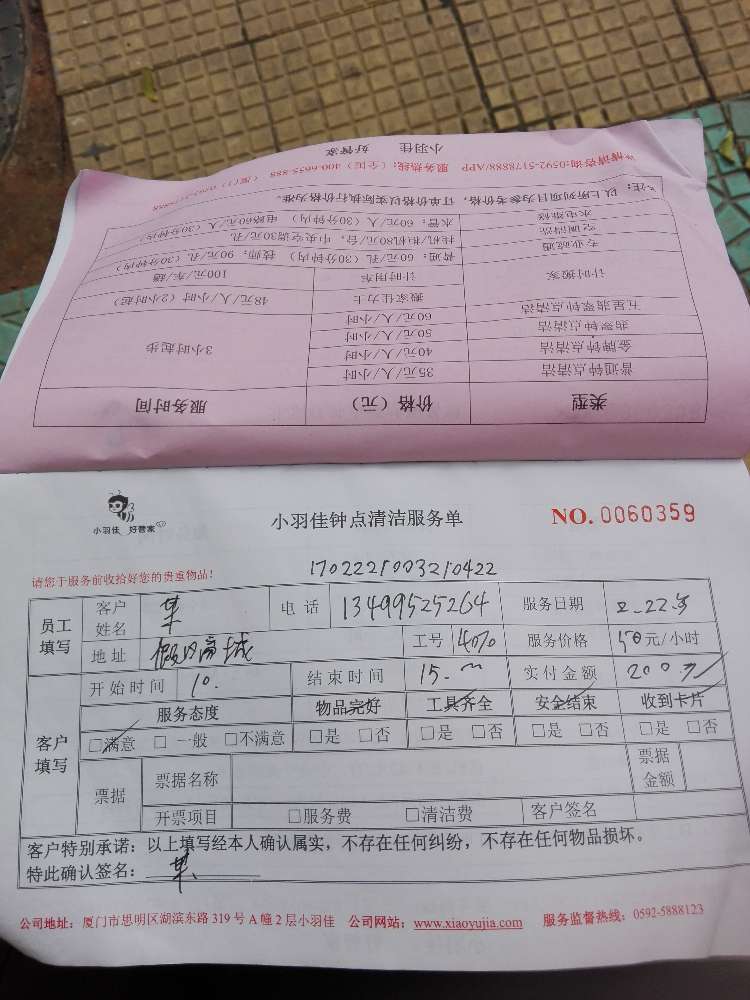 *情请咨询:0592-5178888/APP 服务热线:(全国)400-6655-888
小羽佳 好管家
*注:以上所列项目为参考价格,订单价格以实际执行价格为准。
类型 价格(元) 服务时间
普通钟点清洁 35元/人/小时 3小时起步
金牌钟点清洁 40元/人/小时
翡翠钟点清洁 50元/人/小时
五星翡翠钟点清洁 60元/人/小时
计时搬家 搬家佳力士 48元/人/小时(2小时起)
计时用车 100元/车/趟
专业疏通 普通:60元/孔(30分钟内) 技师:90元/孔(30分钟内)
空调清洗 挂机,柜机80元/台,中央空调30元/孔
水电维修 水管:60元/人(30分钟内) 电路60元/人(30分钟内)
小羽佳 好管家
小羽佳钟点清洁服务单 NO. 0060359
请您于服务前收拾好您的贵重物品! 1702221003210422
员工填写 客户姓名 电话 13499525264 服务日期 2.22
地址 假日商城 工号 服务价格 元/小时
客户填写 开始时间 10. 结束时间 15. 实付金额 200
服务态度 物品完好 工具齐全 安全结束 收到卡片
□满意 □一般 □不满意 □是 □否 □是 □否 □是 □否 □是 □否
票据 票据名称 票据金额
开票项目 □服务费 □清洁费 客户签名
客户特别承诺:以上填写经本人确认属实,不存在任何纠纷,不存在任何物品损坏。
特此确认签名:
公司地址:厦门市思明区湖滨东路319号A幢2层小羽佳 公司网站:www.xiaoyujia.com 服务监督热线:0592-5888123